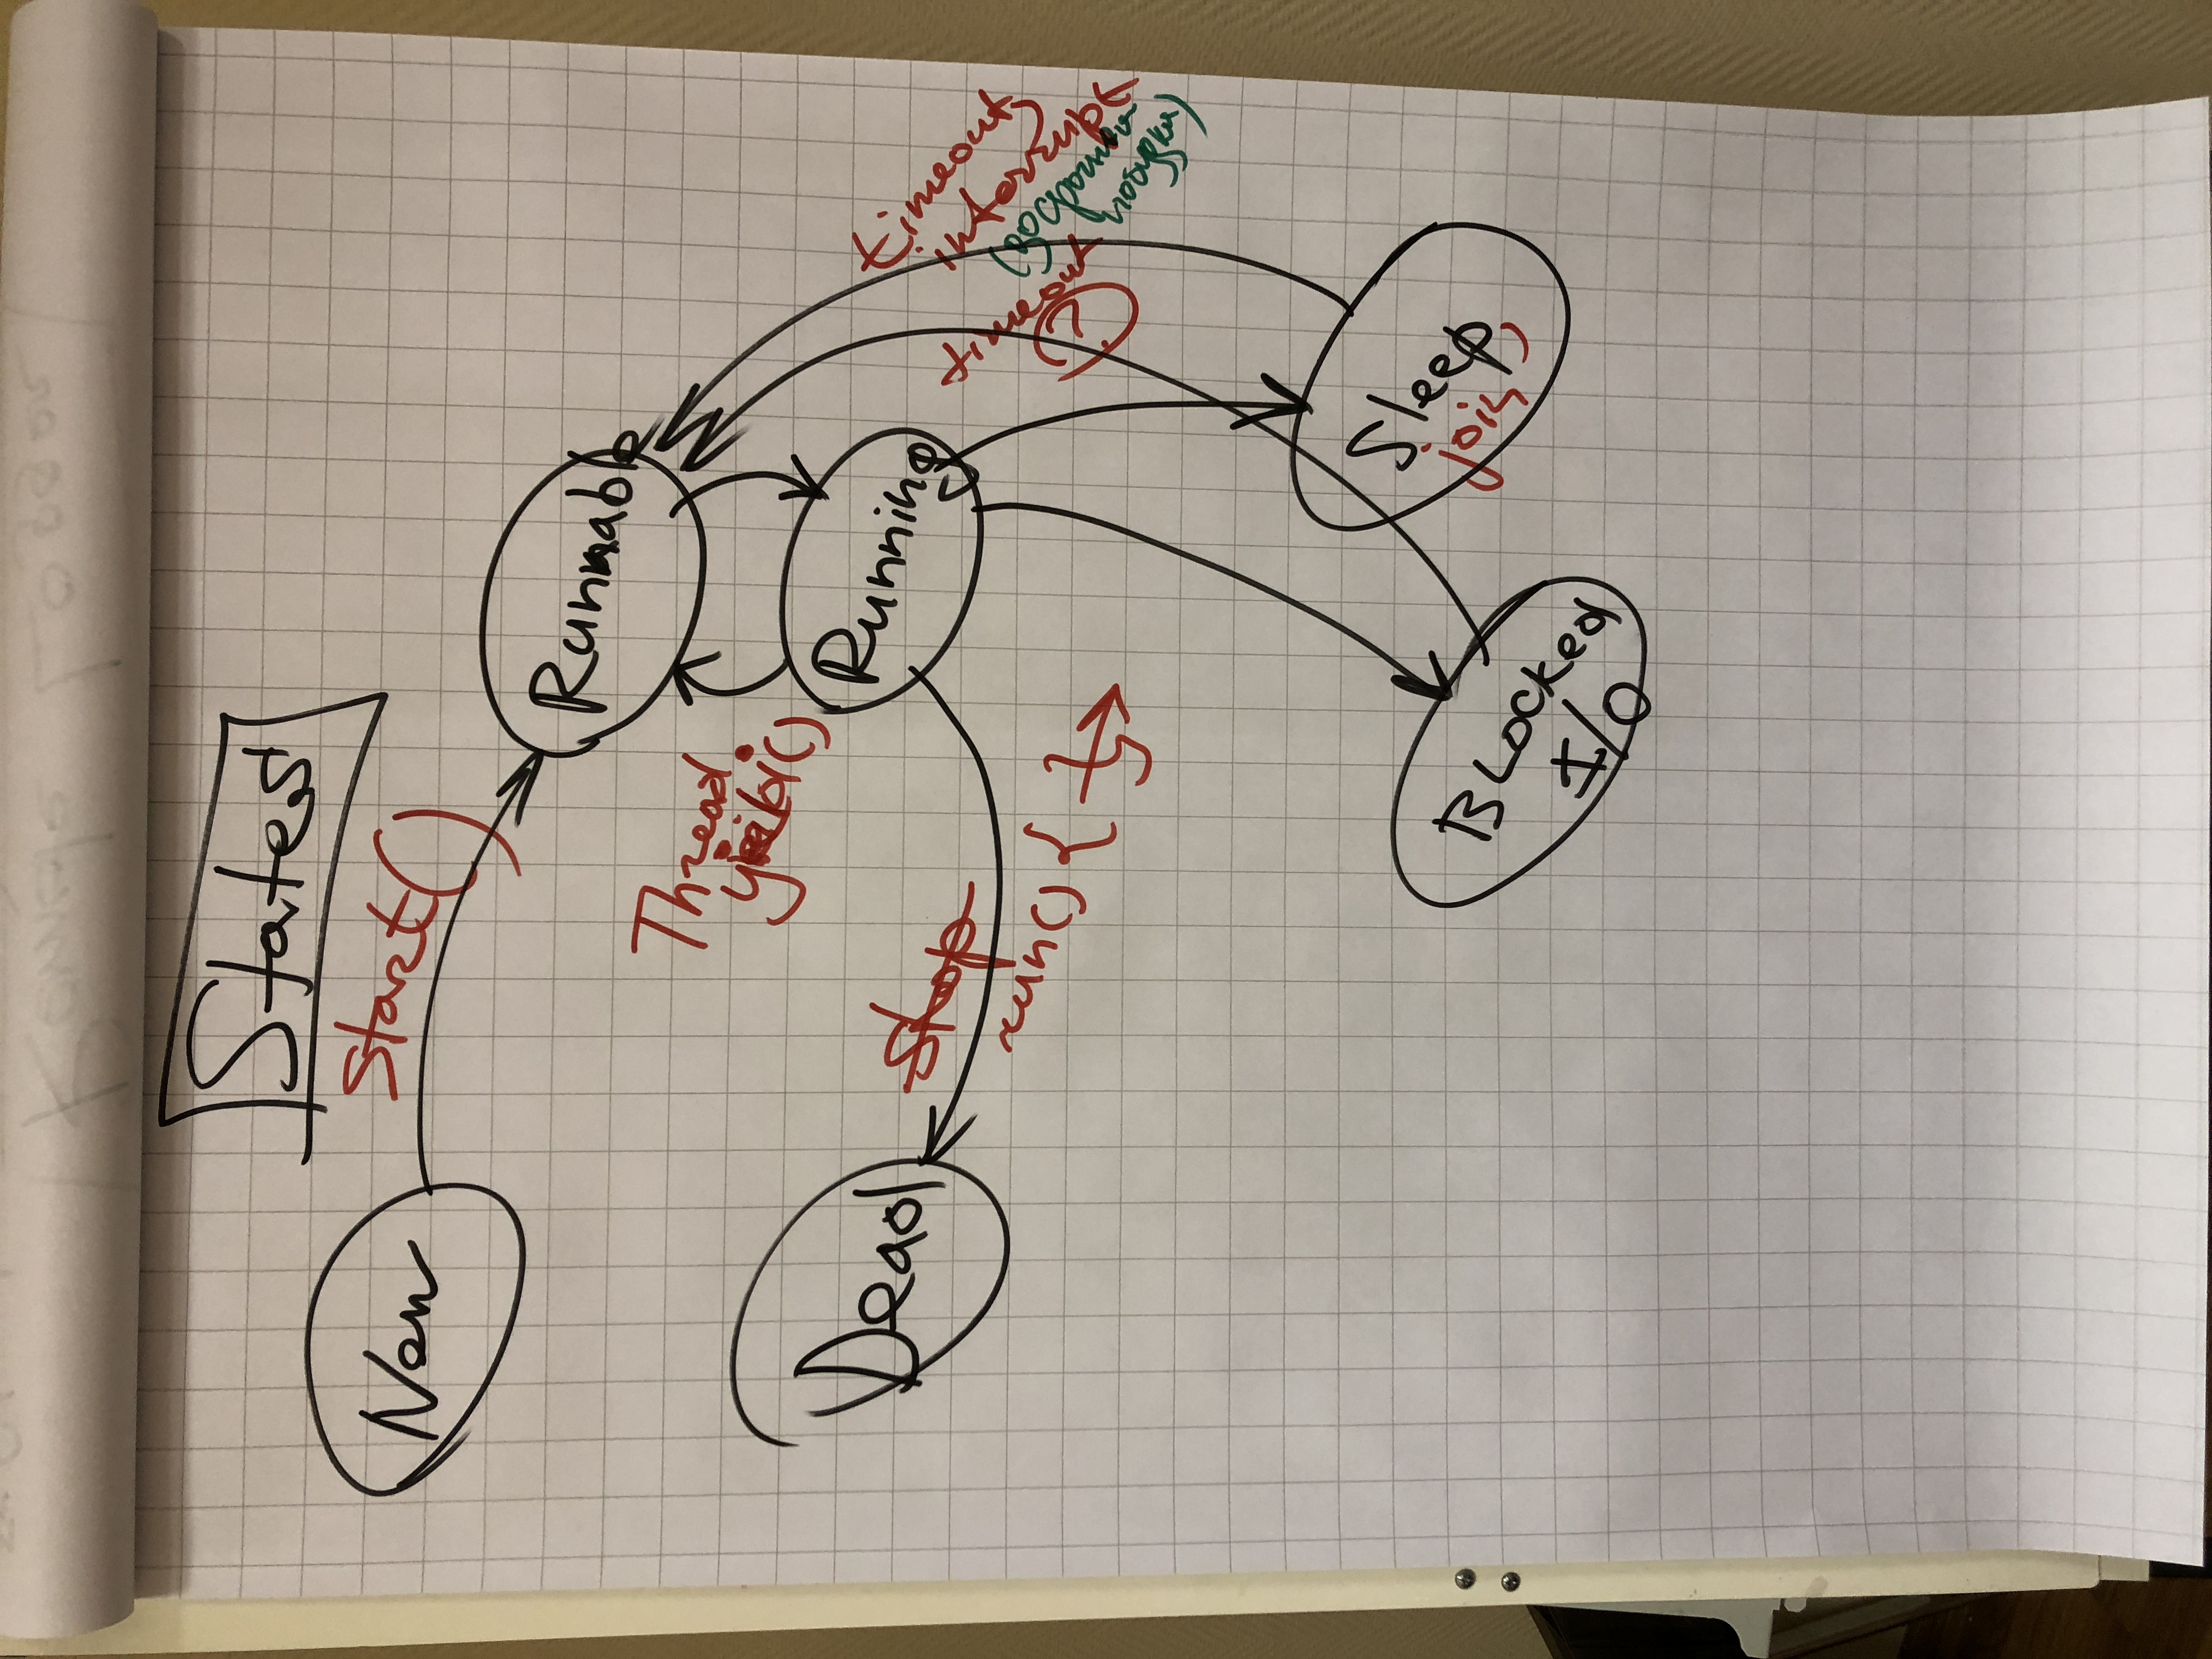 States
New
start()
Runnable
Thread.
yield()
Running
Dead
Stop
run() { }
timeout
?
timeout,
interrupt
(досрочная
побудка)
Sleep,
join
Blocked
I/O